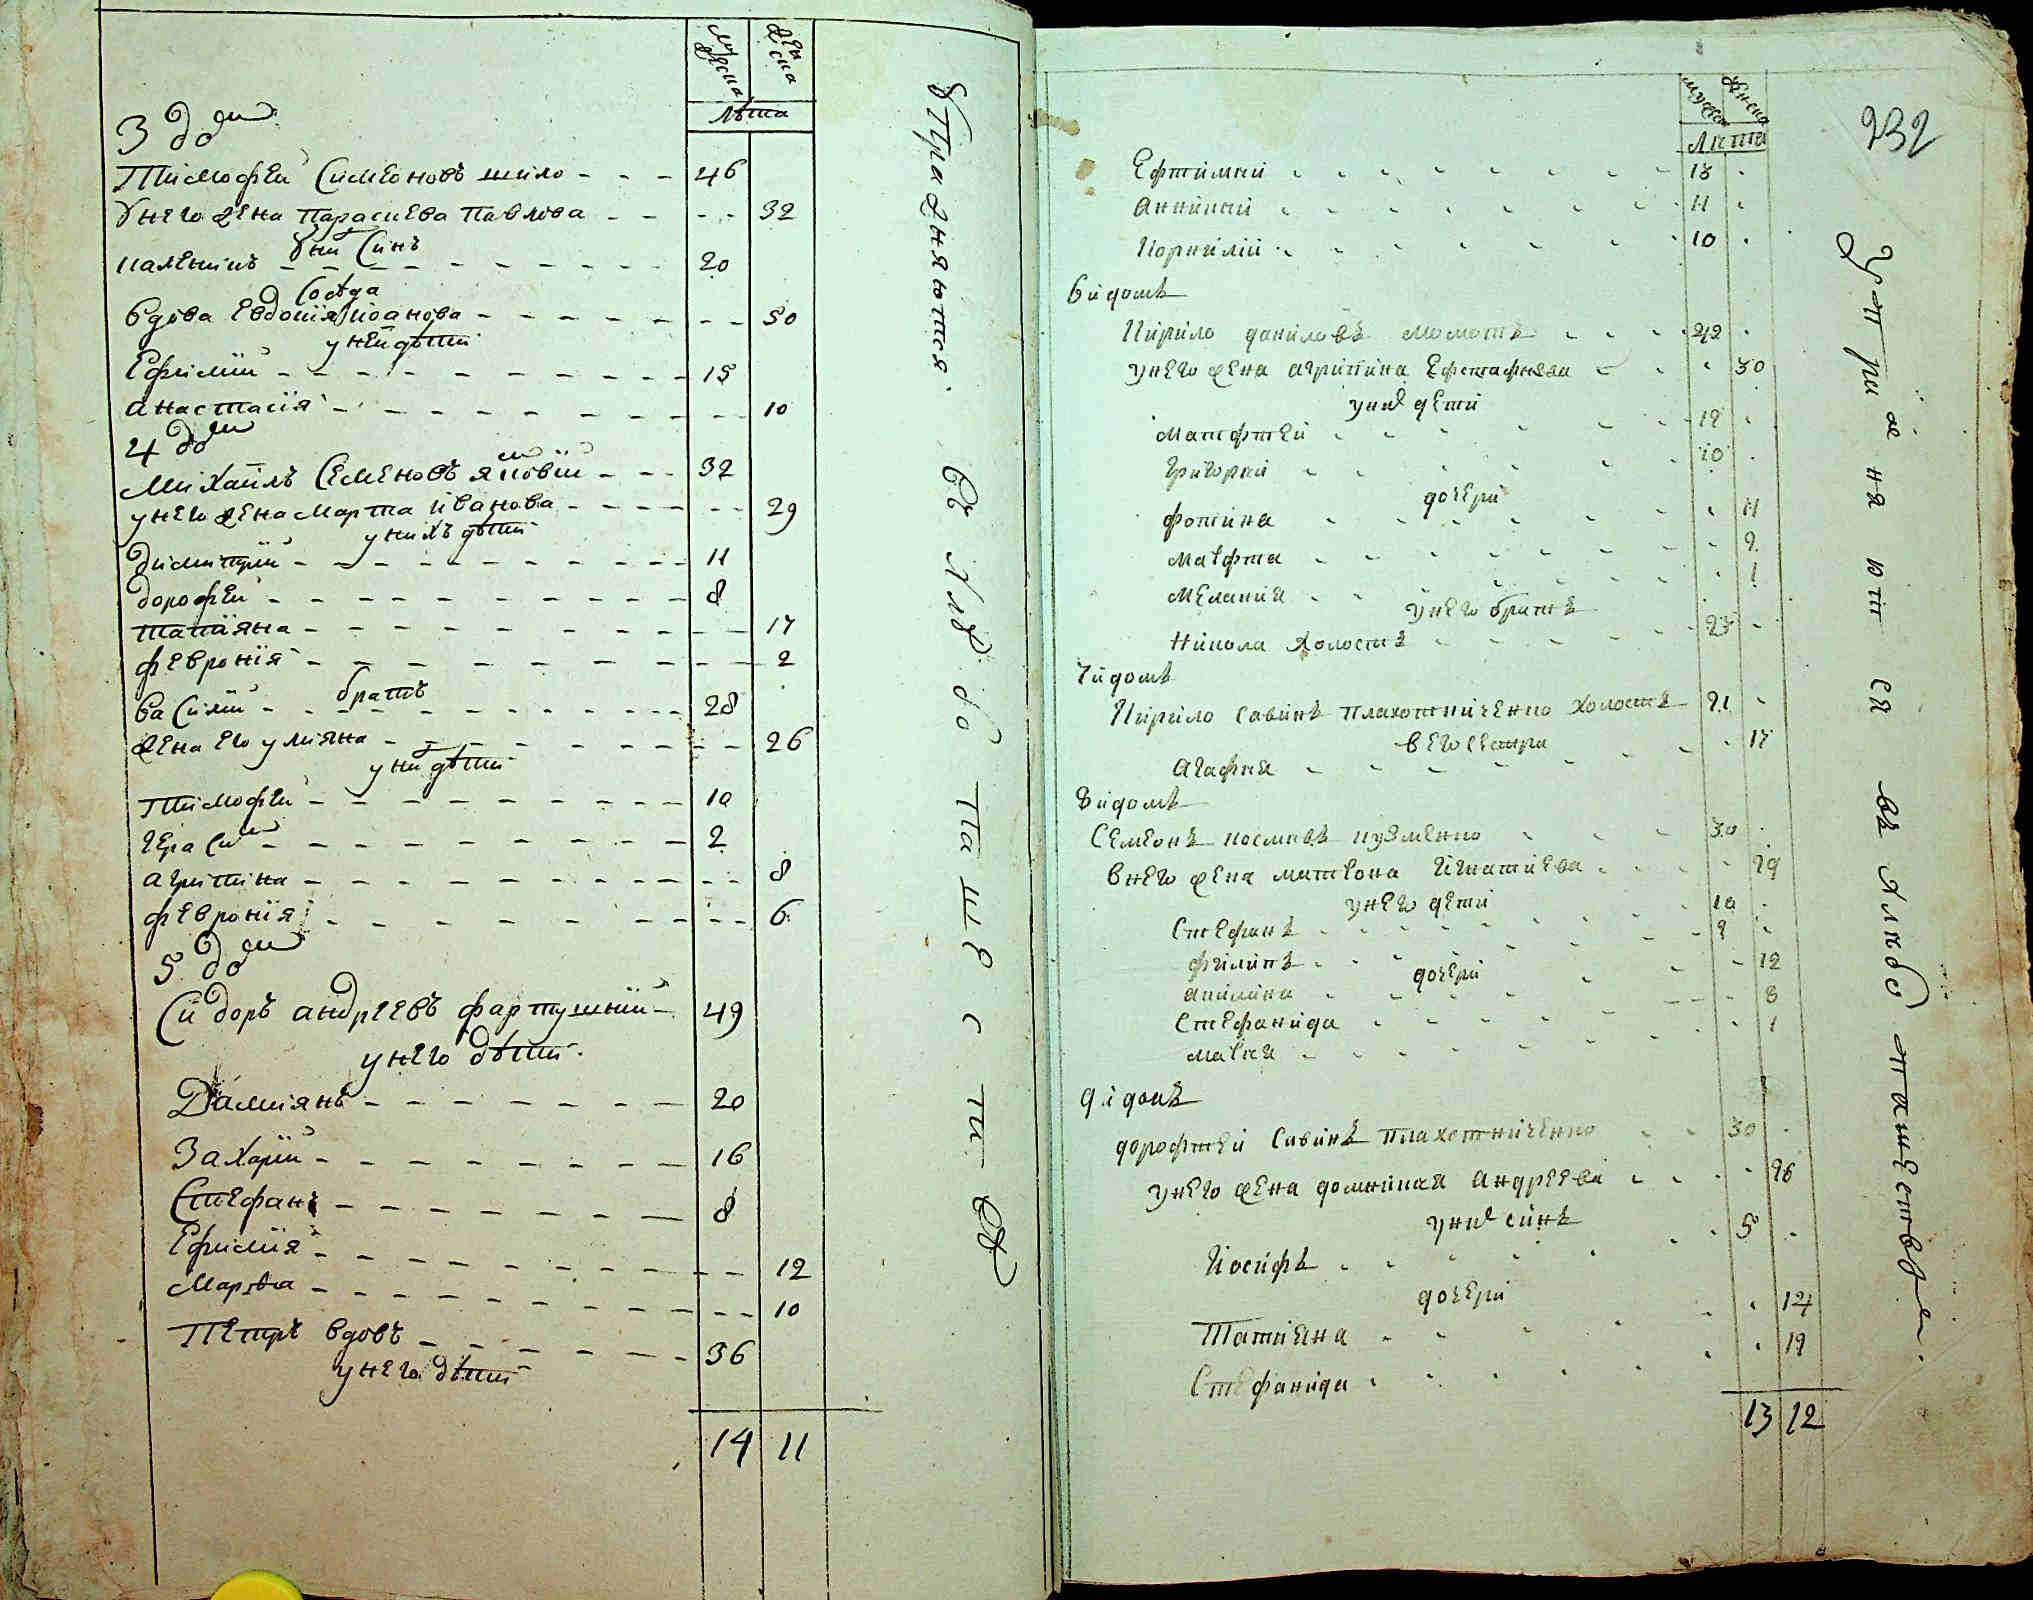 мужеска женска
лѣта
3 домъ
Тимофей Симеоновъ шило 46
Унего жена Параскева Павлова 32
Уних Синъ
каленикъ 20
Соседа
Вдова Евдокія Иоанова 50
у ней дѣти
Ефимій 15
Анастасія 10
4 домъ
Михаилъ Семеновъ яковим 32
у него жена Марта Иванова 29
у нихъ дѣти
димитрій 11
дорофей 8
татіяна 17
февронія 2
братъ
василій 28
жена его уліяна 26
у них дѣти
Тимофей 10
герасим 2
агрипина 8
февронія 6
5 домъ
Сидоръ андреевъ фартушній 49
у него дѣти
Даміянъ 20
Захарій 16
Стефанъ 8
Ефимія 12
Марѳа 10
Петръ вдовъ 36
у него дѣти
14 11
Упражняются въ хлѣбопашествѣ
232
мужеска женска
лита
Ефтимий 13
аникий 11
Корнилій 10
6й домъ
Кирило даниловъ момотъ 42
у него жена агрипина Ефстафиева 30
у них дети
Матфтей 12
григорий 10
дочери
фотина 11
Мавфта 9
Мелания 1
у него братъ
Никола холостъ 23
7й домъ
Кирило савинъ плахотниченко холостъ 21
в его сестра
Агафия 17
8й домъ
Семеонъ косминъ кузменко 30
в него жена матрона Игнатиева 29
у него дети
Стефанъ 10
филипъ 9
дочери
акилина 12
Стефанида 8
мавкя 1
9й домъ
дорофтей савинъ плахотниченко 30
у него жена домникия андреева 26
у них синъ
Иосифъ 5
дочери
Татияна 14
Стефанида 12
13 12
Упражняются въ хлѣбопашествѣ